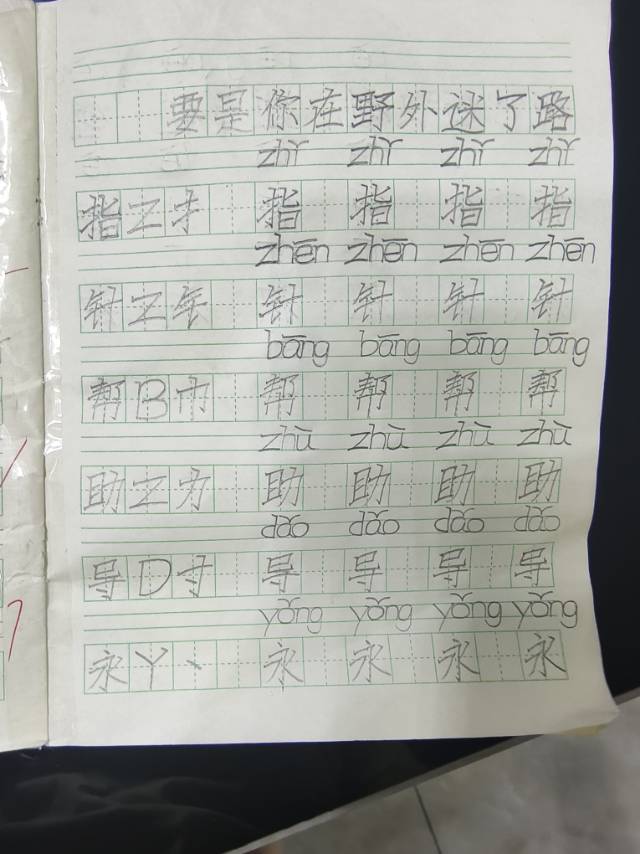 要是你在野外迷了路
zhǐ zhǐ zhǐ zhǐ
指 Z 扌 指 指 指 指
zhēn zhēn zhēn zhēn
针 Z 钅 针 针 针 针
bāng bāng bāng bāng
帮 B 巾 帮 帮 帮 帮
zhù zhù zhù zhù
助 Z 力 助 助 助 助
dǎo dǎo dǎo dǎo
导 D 寸 导 导 导 导
yǒng yǒng yǒng yǒng
永 Y 丶 永 永 永 永